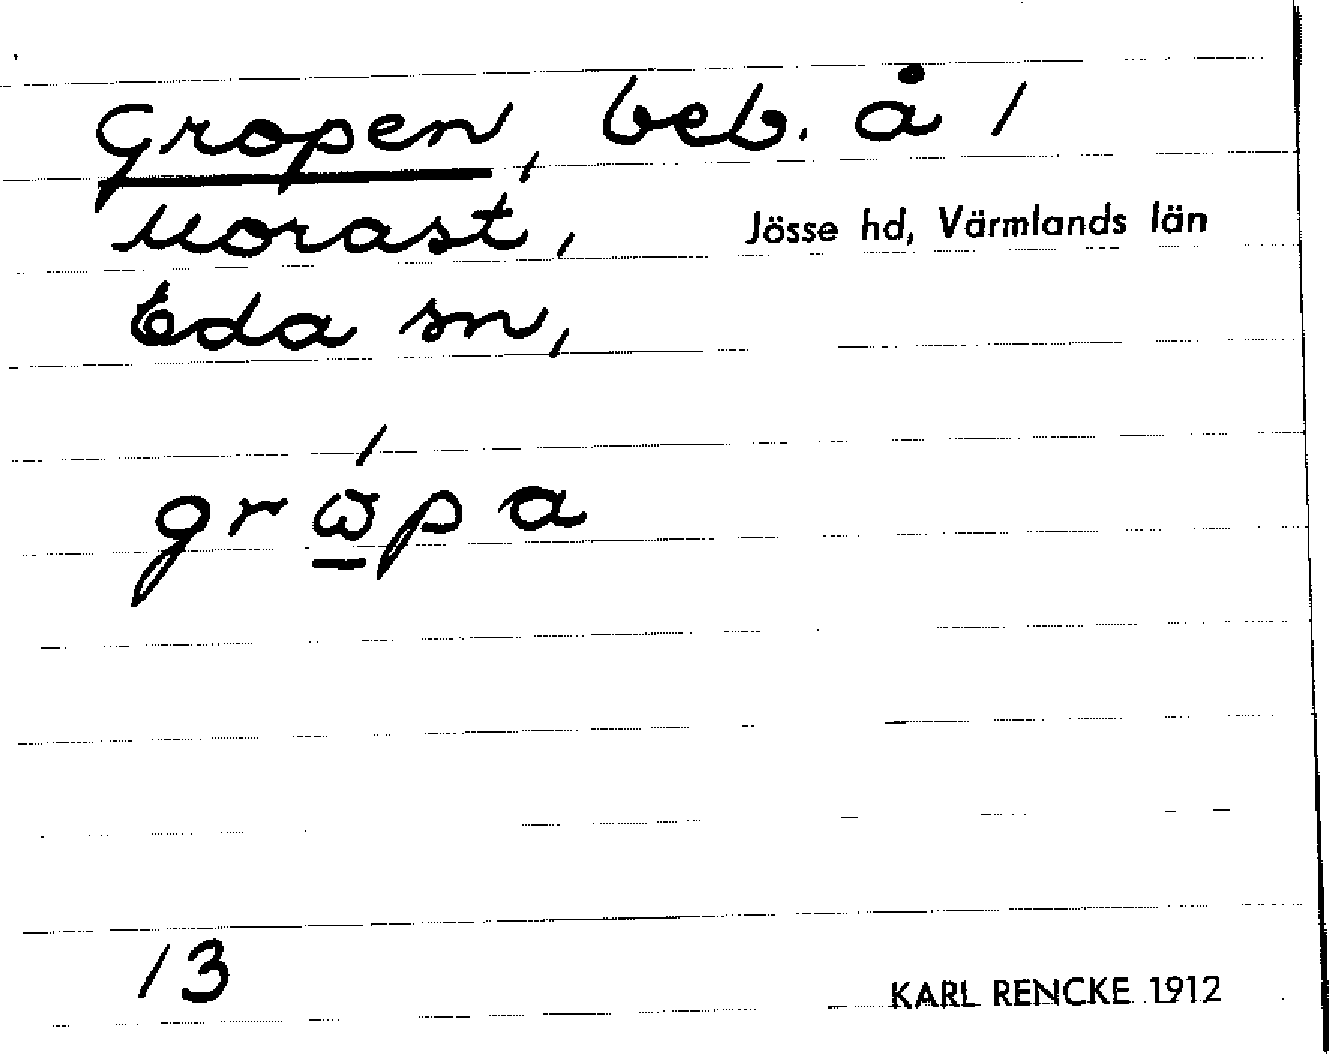 Gropen, beb. å 1
Morast, Jösse hd, Värmlands län
Eda sn,
grώ̲pa
13
KARL RENCKE 1912